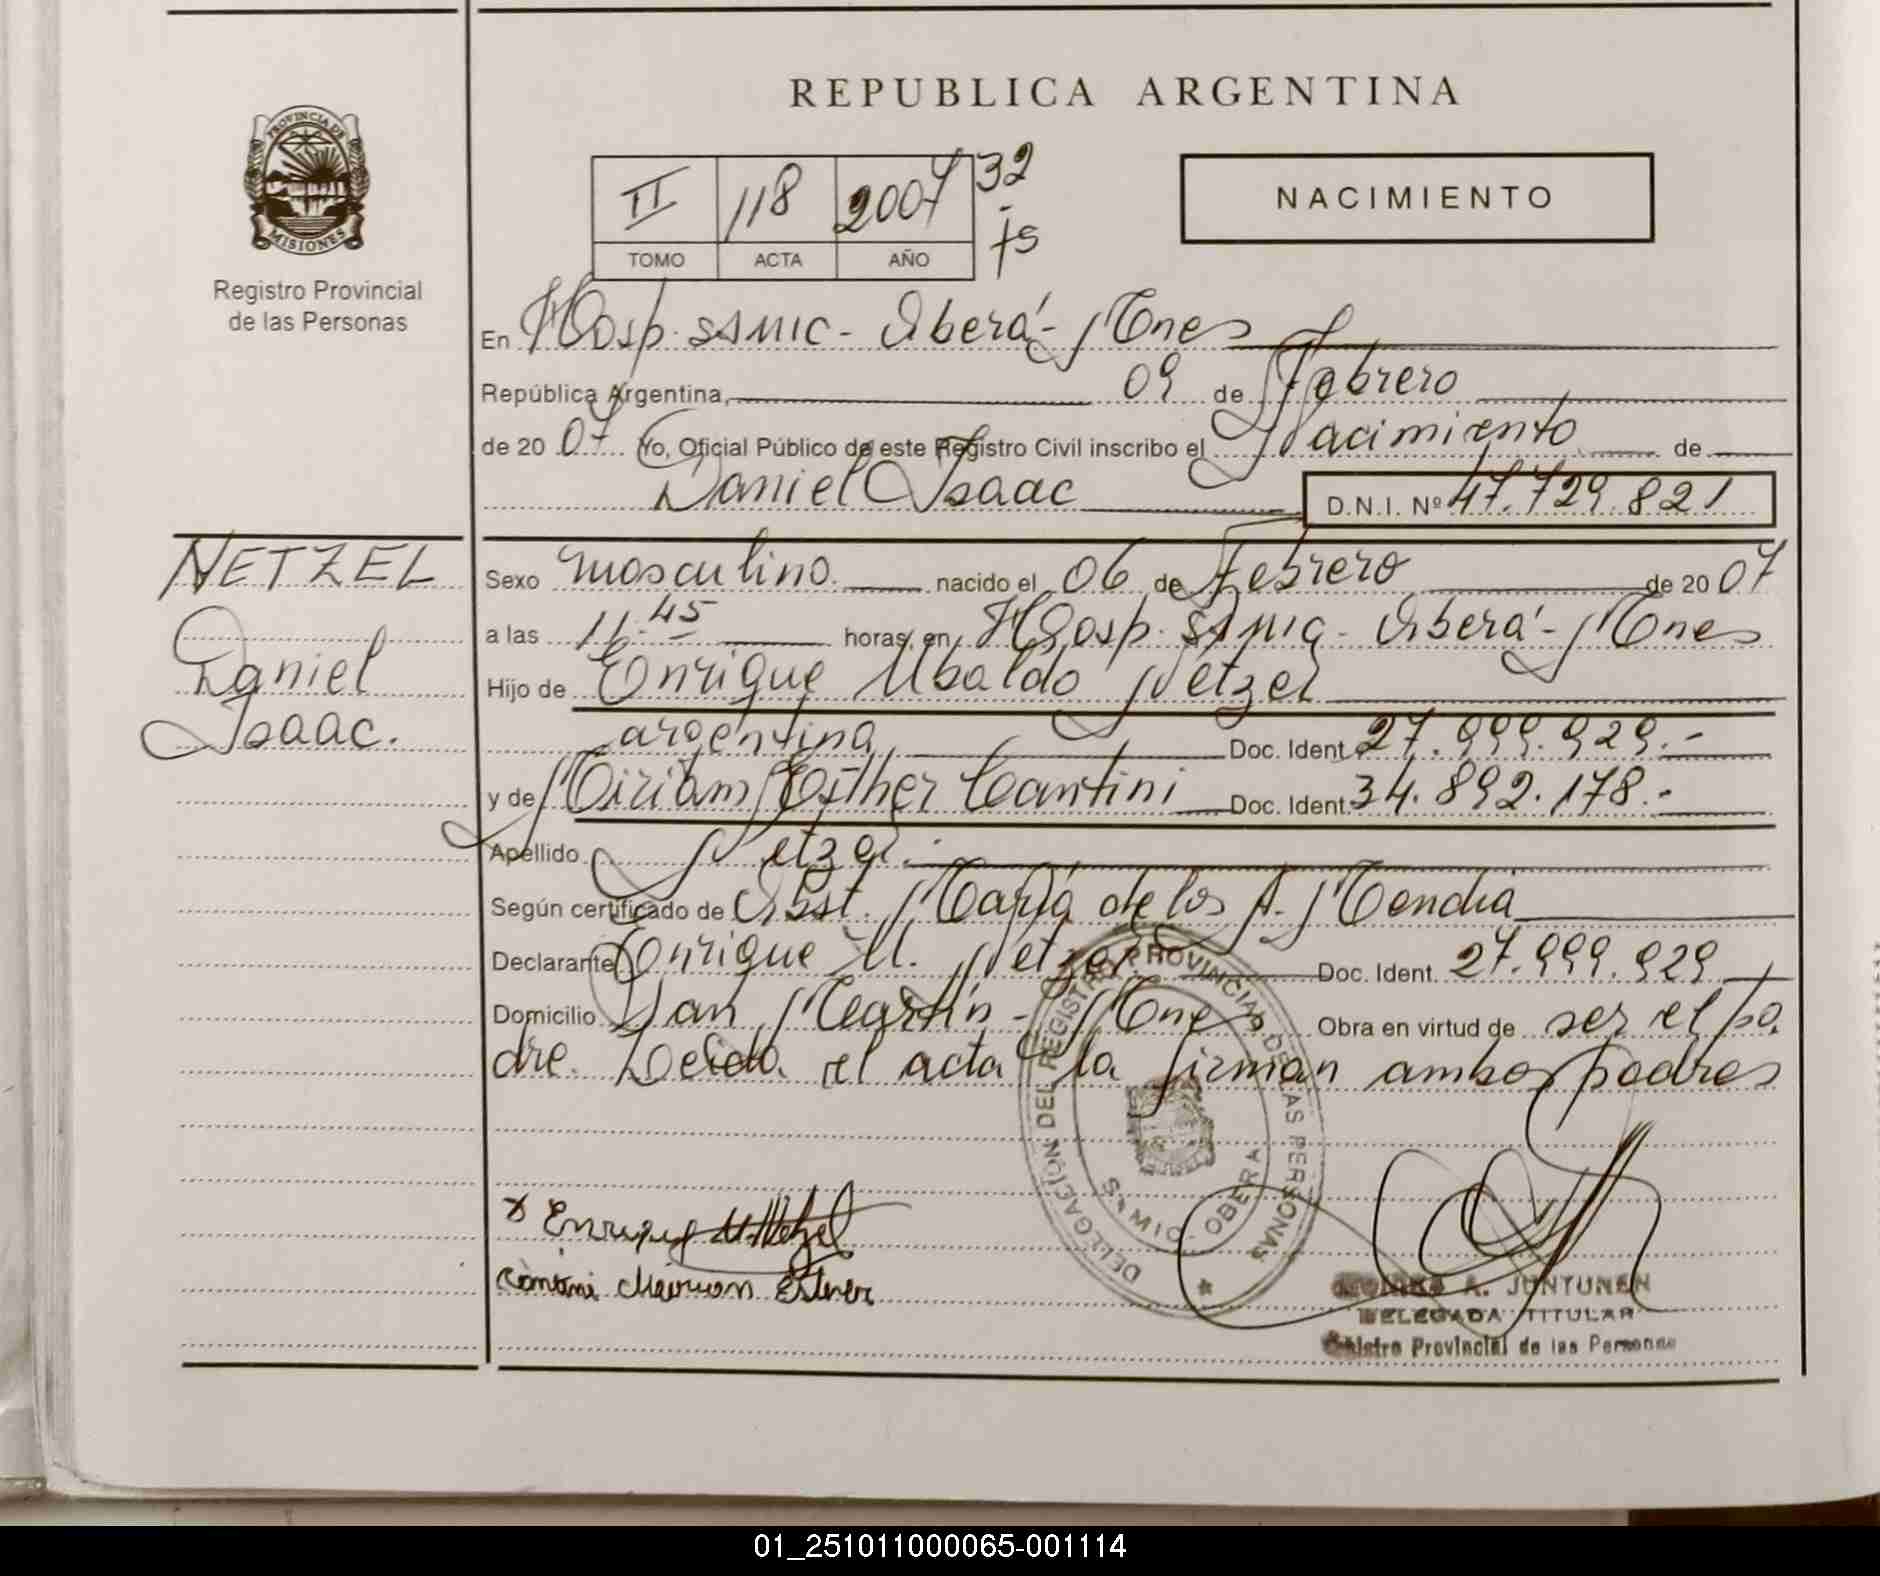 REPUBLICA ARGENTINA
PROVINCIA DE
MISIONES
Registro Provincial
de las Personas
II 118 2007 32
TOMO ACTA AÑO - fs
NACIMIENTO
En Hosp. SAMIC - Oberá - Mnes
República Argentina, 09 de Febrero
de 2007 Yo, Oficial Público de este Registro Civil inscribo el Nacimiento de
Daniel Isaac D.N.I. Nº 47.729.821
NETZEL
Daniel
Isaac.
Sexo masculino. nacido el 06 de Febrero de 2007
a las 11.45 horas, en Hosp. Samic - Oberá - Mnes
Hijo de Enrique Ubaldo Netzel
argentina Doc. Ident. 27.999.929.-
y de Miriam Esther Cantini Doc. Ident. 34.892.178.-
Apellido Netzel.
Según certificado de Obst. María de los A. Mendia
Declarante Enrique U. Netzel Doc. Ident. 27.999.929
Domicilio San Martín - Mnes Obra en virtud de ser el pa
dre. Leida el acta la firman ambos padres
DELEGACIÓN DEL REGISTRO PROVINCIAL DE LAS PERSONAS
SAMIC - OBERA
x Enrique U. Netzel
Cantini Miriam Esther
A. JUNTUNEN
DELEGADA TITULAR
Registro Provincial de las Personas
01_251011000065-001114